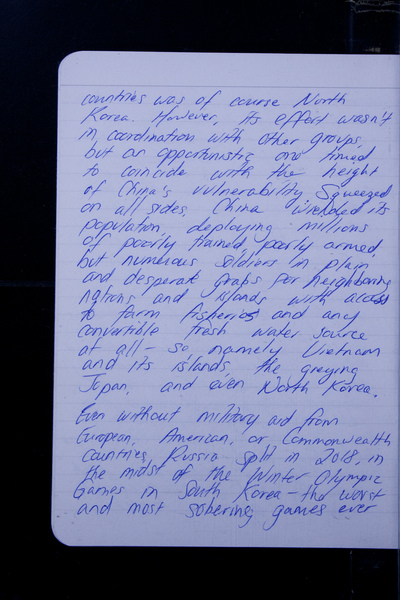 countries was of course North
Korea. However, its effort wasn't
in coordination with other groups,
but an opportunistic one timed
to coincide with the height
of China's vulnerability. Squeezed
on all sides, China wielded its
population, deploying millions
of poorly trained, poorly armed,
but numerous soldiers in plain
and desperate grabs for neighboring
nations and islands with access
to farm fisheries and any
convertible fresh water source
at all – so, namely Vietnam
and its islands, the greying
Japan, and even North Korea.
Even without military aid from
European, American, or Commonwealth
countries, Russia split in 2018, in
the midst of the Winter Olympic
Games in South Korea – the worst
and most sobering games ever